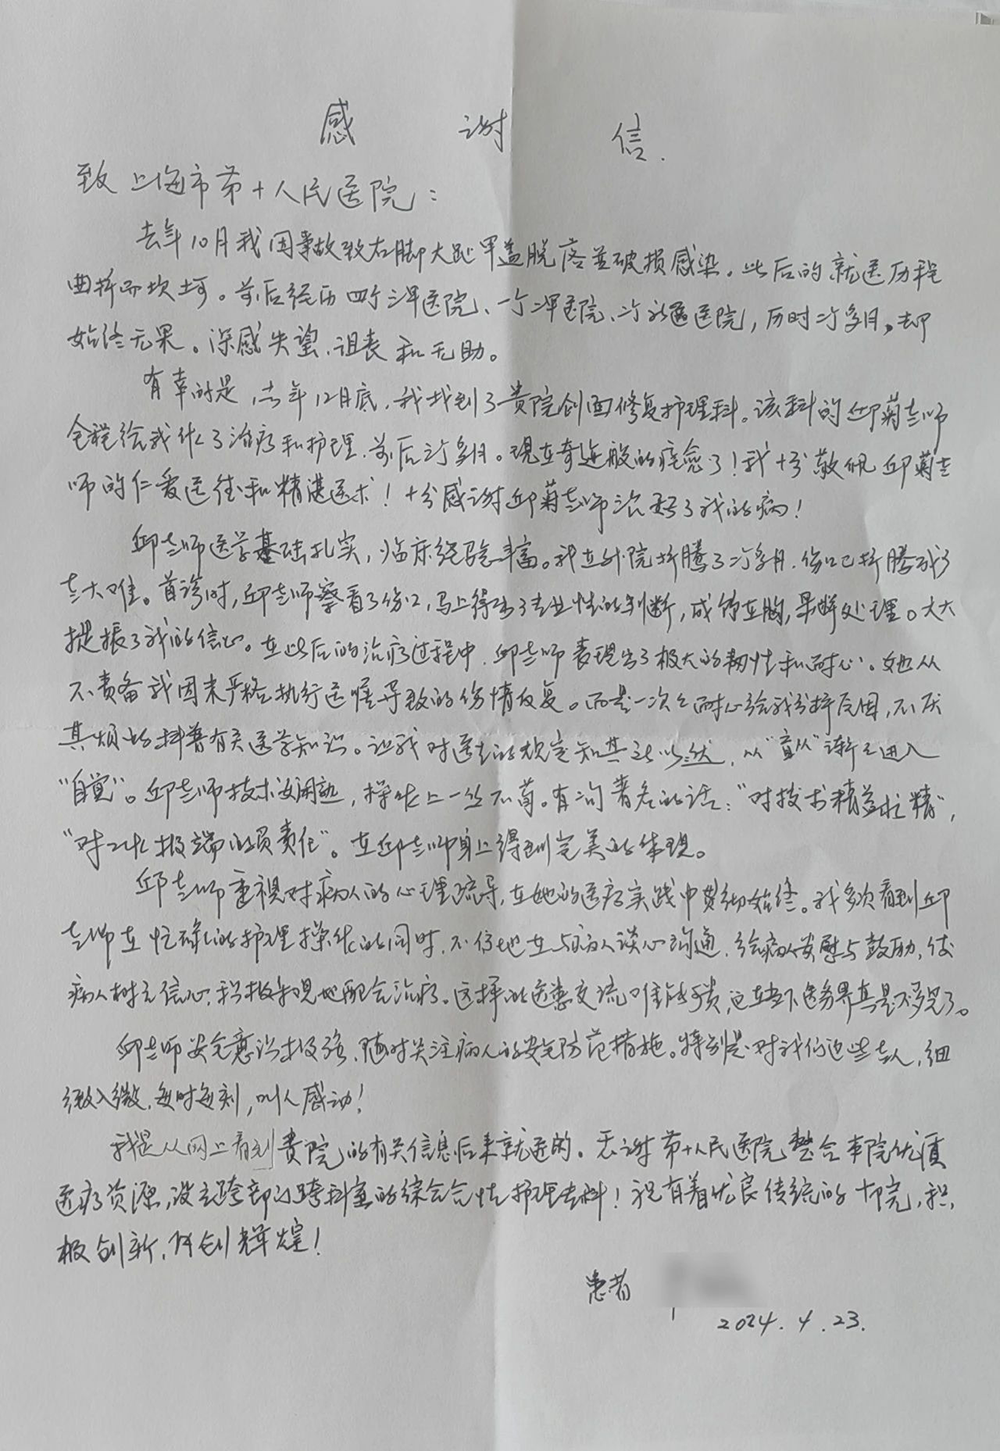 感谢信.
致上海市第十人民医院：
去年10月我因事故致右脚大趾甲盖脱落並破损感染。此后的就医历程
曲折而坎坷。前后经历四个三甲医院、一个二甲医院、二个社区医院，历时二个多月，却
始终无果。深感失望、沮丧和无助。
有幸的是，去年12月底，我找到了贵院创面修复护理科。该科的邱菊老师
全程给我作了治疗和护理，前后三个多月。现在奇迹般的痊愈了！我十分敬佩邱菊老
师的仁爱医德和精湛医术！十分感谢邱菊老师治愈了我的病！
邱老师医学基础扎实，临床经验丰富。我在外院折腾了二个多月，伤口已折腾成了
老大难。首诊时，邱老师察看了伤口，马上得出了专业性的判断，成竹在胸，果断处理。大大
提振了我的信心。在此后的治疗过程中，邱老师表现出了极大的韧性和耐心。她从
不责备我因未严格执行医嘱导致的伤情反复。而是一次次耐心给我分析原因，不厌
其烦的科普有关医学知识。让我对医生的规定知其所以然，从“盲从”渐渐进入
“自觉”。邱老师技术娴熟，操作上一丝不苟。有二句著名的话：“对技术精益求精”，
“对工作极端的负责任”。在邱老师身上得到完美的体现。
邱老师重视对病人的心理疏导，在她的医疗实践中贯彻始终。我多次看到邱
老师在忙碌的护理操作的同时，不停地在与病人谈心沟通，给病人安慰与鼓励，使
病人树立信心，积极乐观地配合治疗。这样的医患交流难能可贵，这在当下医务界真是不多见了。
邱老师安全意识极强，随时关注病人的安全防范措施。特别是对我们这些老人，细
微入微，每时每刻，叫人感动！
我是从网上看到贵院的有关信息后来就医的。感谢第十人民医院整合本院优质
医疗资源，设立跨部门跨科室的综合性护理专科！祝有着优良传统的十院，积
极创新，再创辉煌！
患者
2024.4.23.